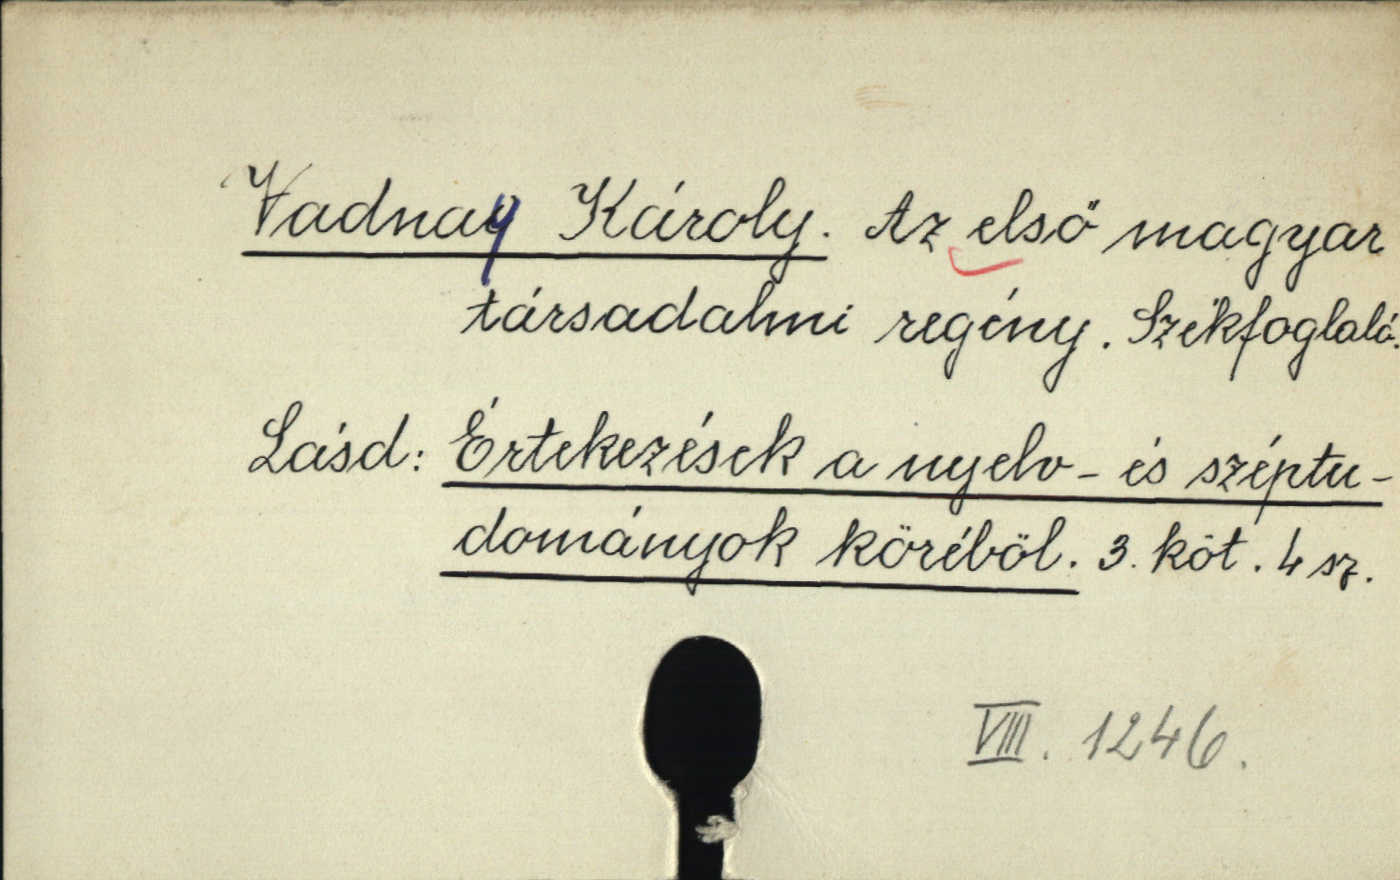 Vadnay Károly. Az első magyar
társadalmi regény. Székfoglaló.
Lásd: Értekezések a nyelv- és széptu-
dományok köréböl. 3. köt. 4 sz.
VIII. 1246.